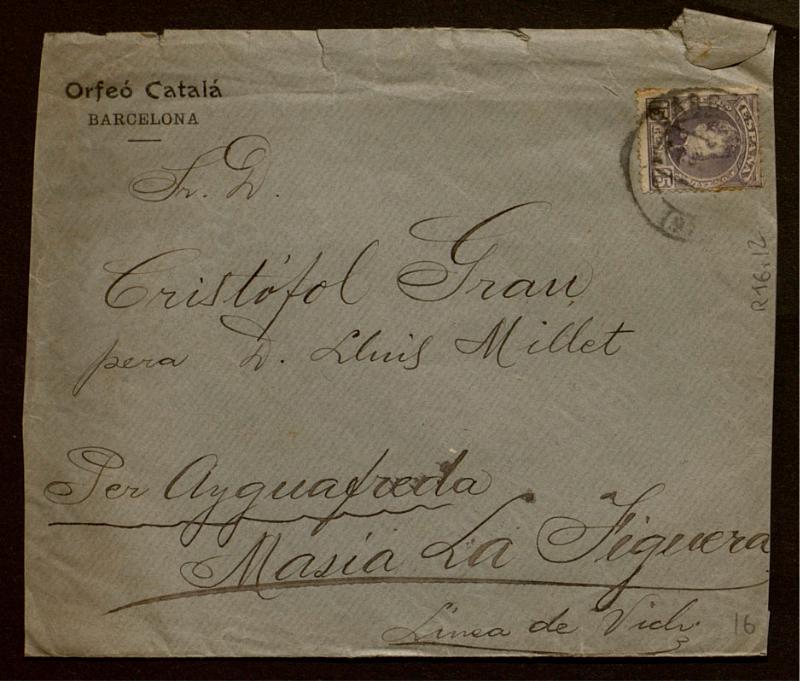 Orfeó Catalá
BARCELONA
Sr. D.
Cristófol Grau
pera D. Lluis Millet
Per Ayguafreda
Masia La Figuera
Linea de Vich
ESPAÑA
15
R16.12
16